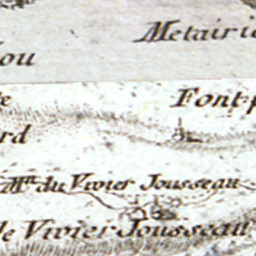 Metairie
ou
Font-
rd
M.in du Vivier Jousseau
le Vivier Jousseau